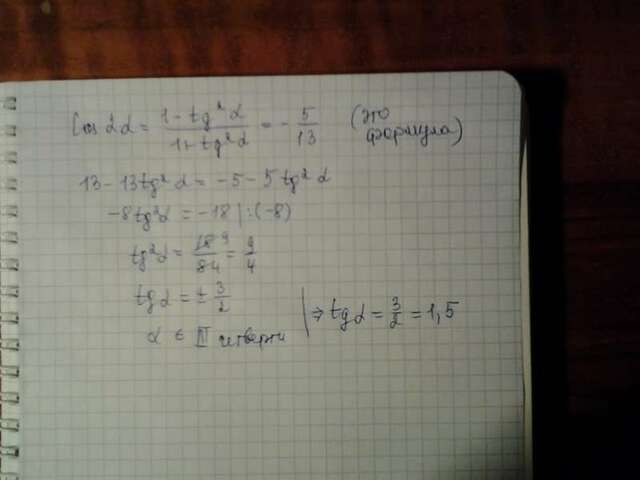 Cos 2α = (1 - tg²α)/(1 + tg²α) = - 5/13 (это формула)
13 - 13tg²α = -5 - 5tg²α
-8tg²α = -18 | :(-8)
tg²α = 18 9/8 4 = 9/4
tgα = ± 3/2
α ∈ III четверти | ⇒ tgα = 3/2 = 1,5